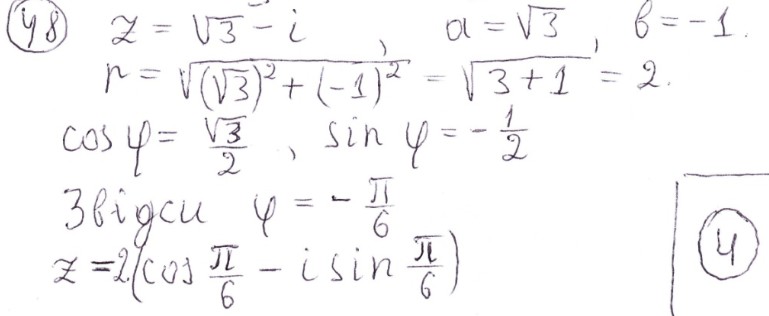 48 z = √3 - i , a = √3 , b = -1.
r = √((√3)² + (-1)²) = √(3+1) = 2.
cos φ = √3/2 , sin φ = -1/2
Звідси φ = - π/6
z = 2(cos π/6 - i sin π/6)
4